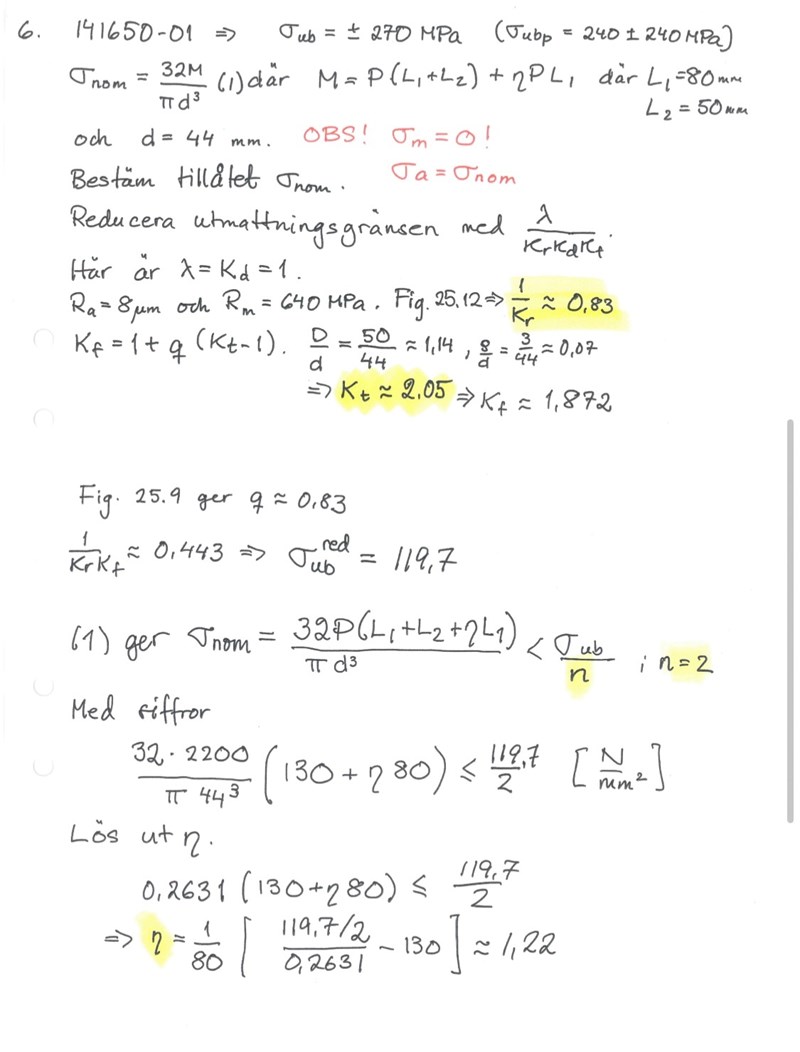 6. 141650-01 ⇒ σub = ± 270 MPa (σubp = 240 ± 240 MPa)
σnom = 32M/πd³ (1) där M = P(L₁+L₂) + ηPL₁ där L₁=80mm
L₂ = 50mm
och d = 44 mm. OBS! σm = 0!
Bestäm tillåtet σnom. σa = σnom
Reducera utmattningsgränsen med λ/KrKdKf.
Här är λ = Kd = 1.
Ra = 8μm och Rm = 640 MPa. Fig. 25.12 ⇒ 1/Kr ≈ 0,83
Kf = 1 + q (Kt-1). D/d = 50/44 ≈ 1,14, ϱ/d = 3/44 ≈ 0,07
⇒ Kt ≈ 2,05 ⇒ Kf ≈ 1,872
Fig. 25.9 ger q ≈ 0,83
1/KrKf ≈ 0,443 ⇒ σub^red = 119,7
(1) ger σnom = 32P(L₁+L₂+ηL₁)/πd³ < σub/n ; n=2
Med siffror
32 · 2200/π 44³ (130 + η 80) ≤ 119,7/2 [N/mm²]
Lös ut η.
0,2631 (130+η 80) ≤ 119,7/2
⇒ η = 1/80 [119,7/2/0,2631 - 130] ≈ 1,22